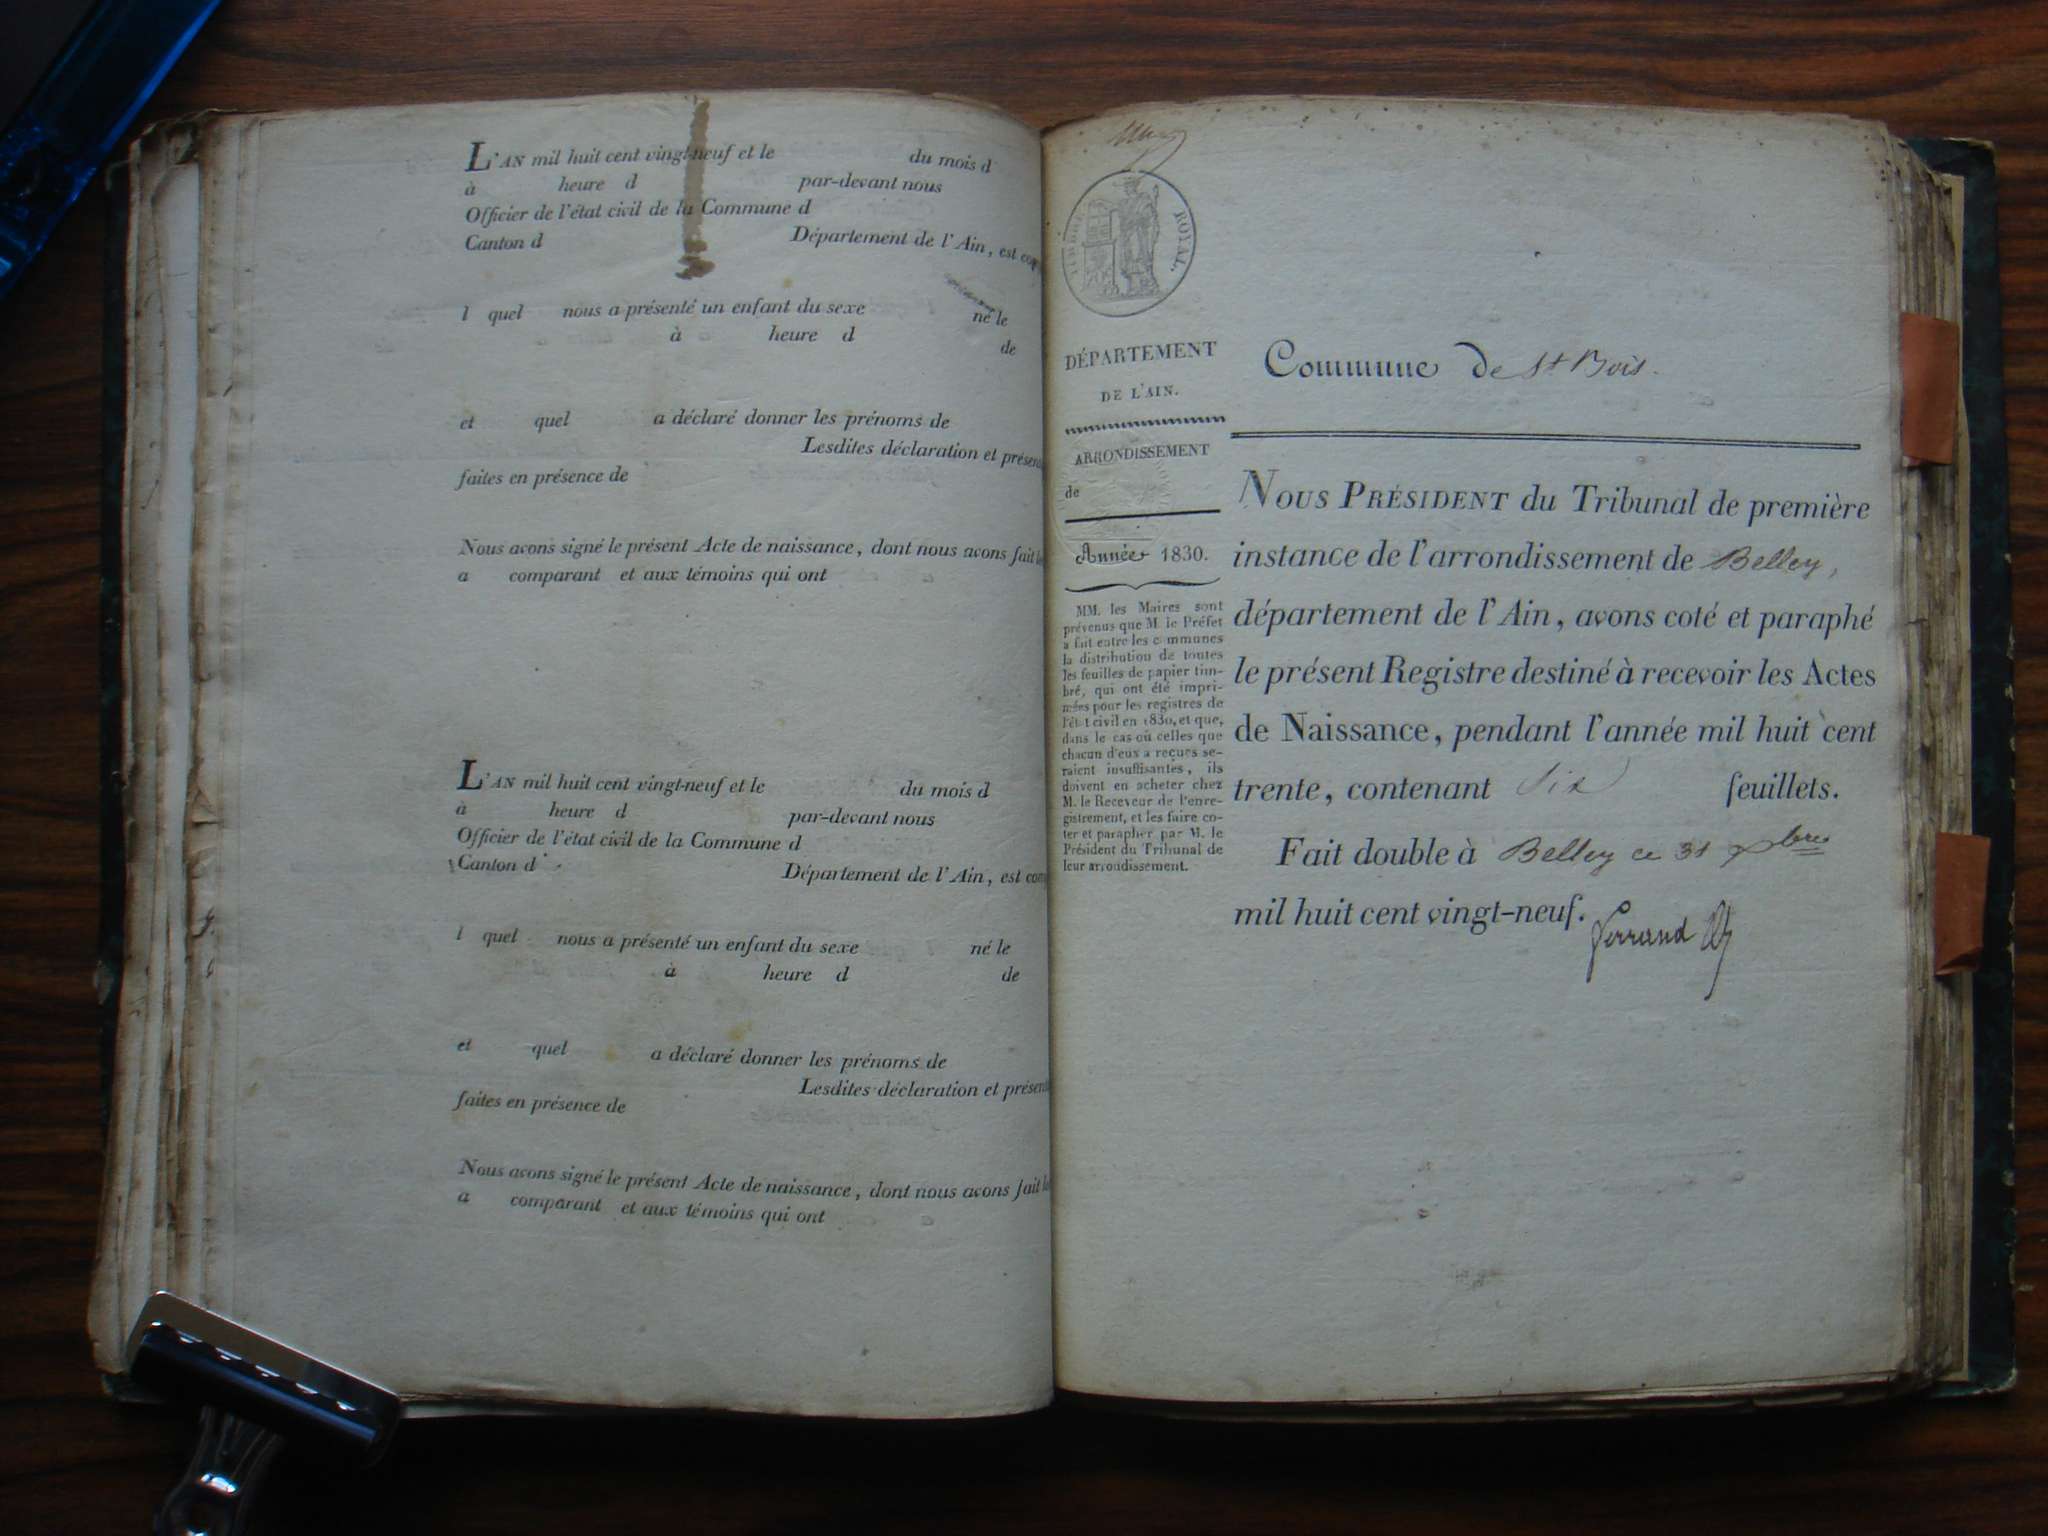 L'AN mil huit cent vingt-neuf et le du mois d
à heure d par-devant nous
Officier de l'état civil de la Commune d
Canton d Département de l'Ain, est com
l quel nous a présenté un enfant du sexe né le
à heure d de
et quel a déclaré donner les prénoms de
Lesdites déclaration et présen
faites en présence de
Nous avons signé le présent Acte de naissance, dont nous avons fait le
a comparant et aux témoins qui ont
L'AN mil huit cent vingt-neuf et le du mois d
à heure d par-devant nous
Officier de l'état civil de la Commune d
Canton d Département de l'Ain, est com
l quel nous a présenté un enfant du sexe né le
à heure d de
et quel a déclaré donner les prénoms de
Lesdites déclaration et présent
faites en présence de
Nous avons signé le présent Acte de naissance, dont nous avons fait le
a comparant et aux témoins qui ont
TIMBRE ROYAL.
DÉPARTEMENT
DE L'AIN.
ARRONDISSEMENT
de
Année 1830.
MM. les Maires sont
prévenus que M. le Préfet
a fait entre les communes
la distribution de toutes
les feuilles de papier tim-
bré, qui ont été impri-
mées pour les registres de
l'état civil en 1830, et que,
dans le cas où celles que
chacun d'eux a reçues se-
raient insuffisantes, ils
doivent en acheter chez
M. le Receveur de l'enre-
gistrement, et les faire co-
ter et parapher par M. le
Président du Tribunal de
leur arrondissement.
Commune de St Bois.
NOUS PRÉSIDENT du Tribunal de première
instance de l'arrondissement de Belley,
département de l'Ain, avons coté et paraphé
le présent Registre destiné à recevoir les Actes
de Naissance, pendant l'année mil huit cent
trente, contenant six feuillets.
Fait double à Belley ce 31 xbre
mil huit cent vingt-neuf.
Ferrand